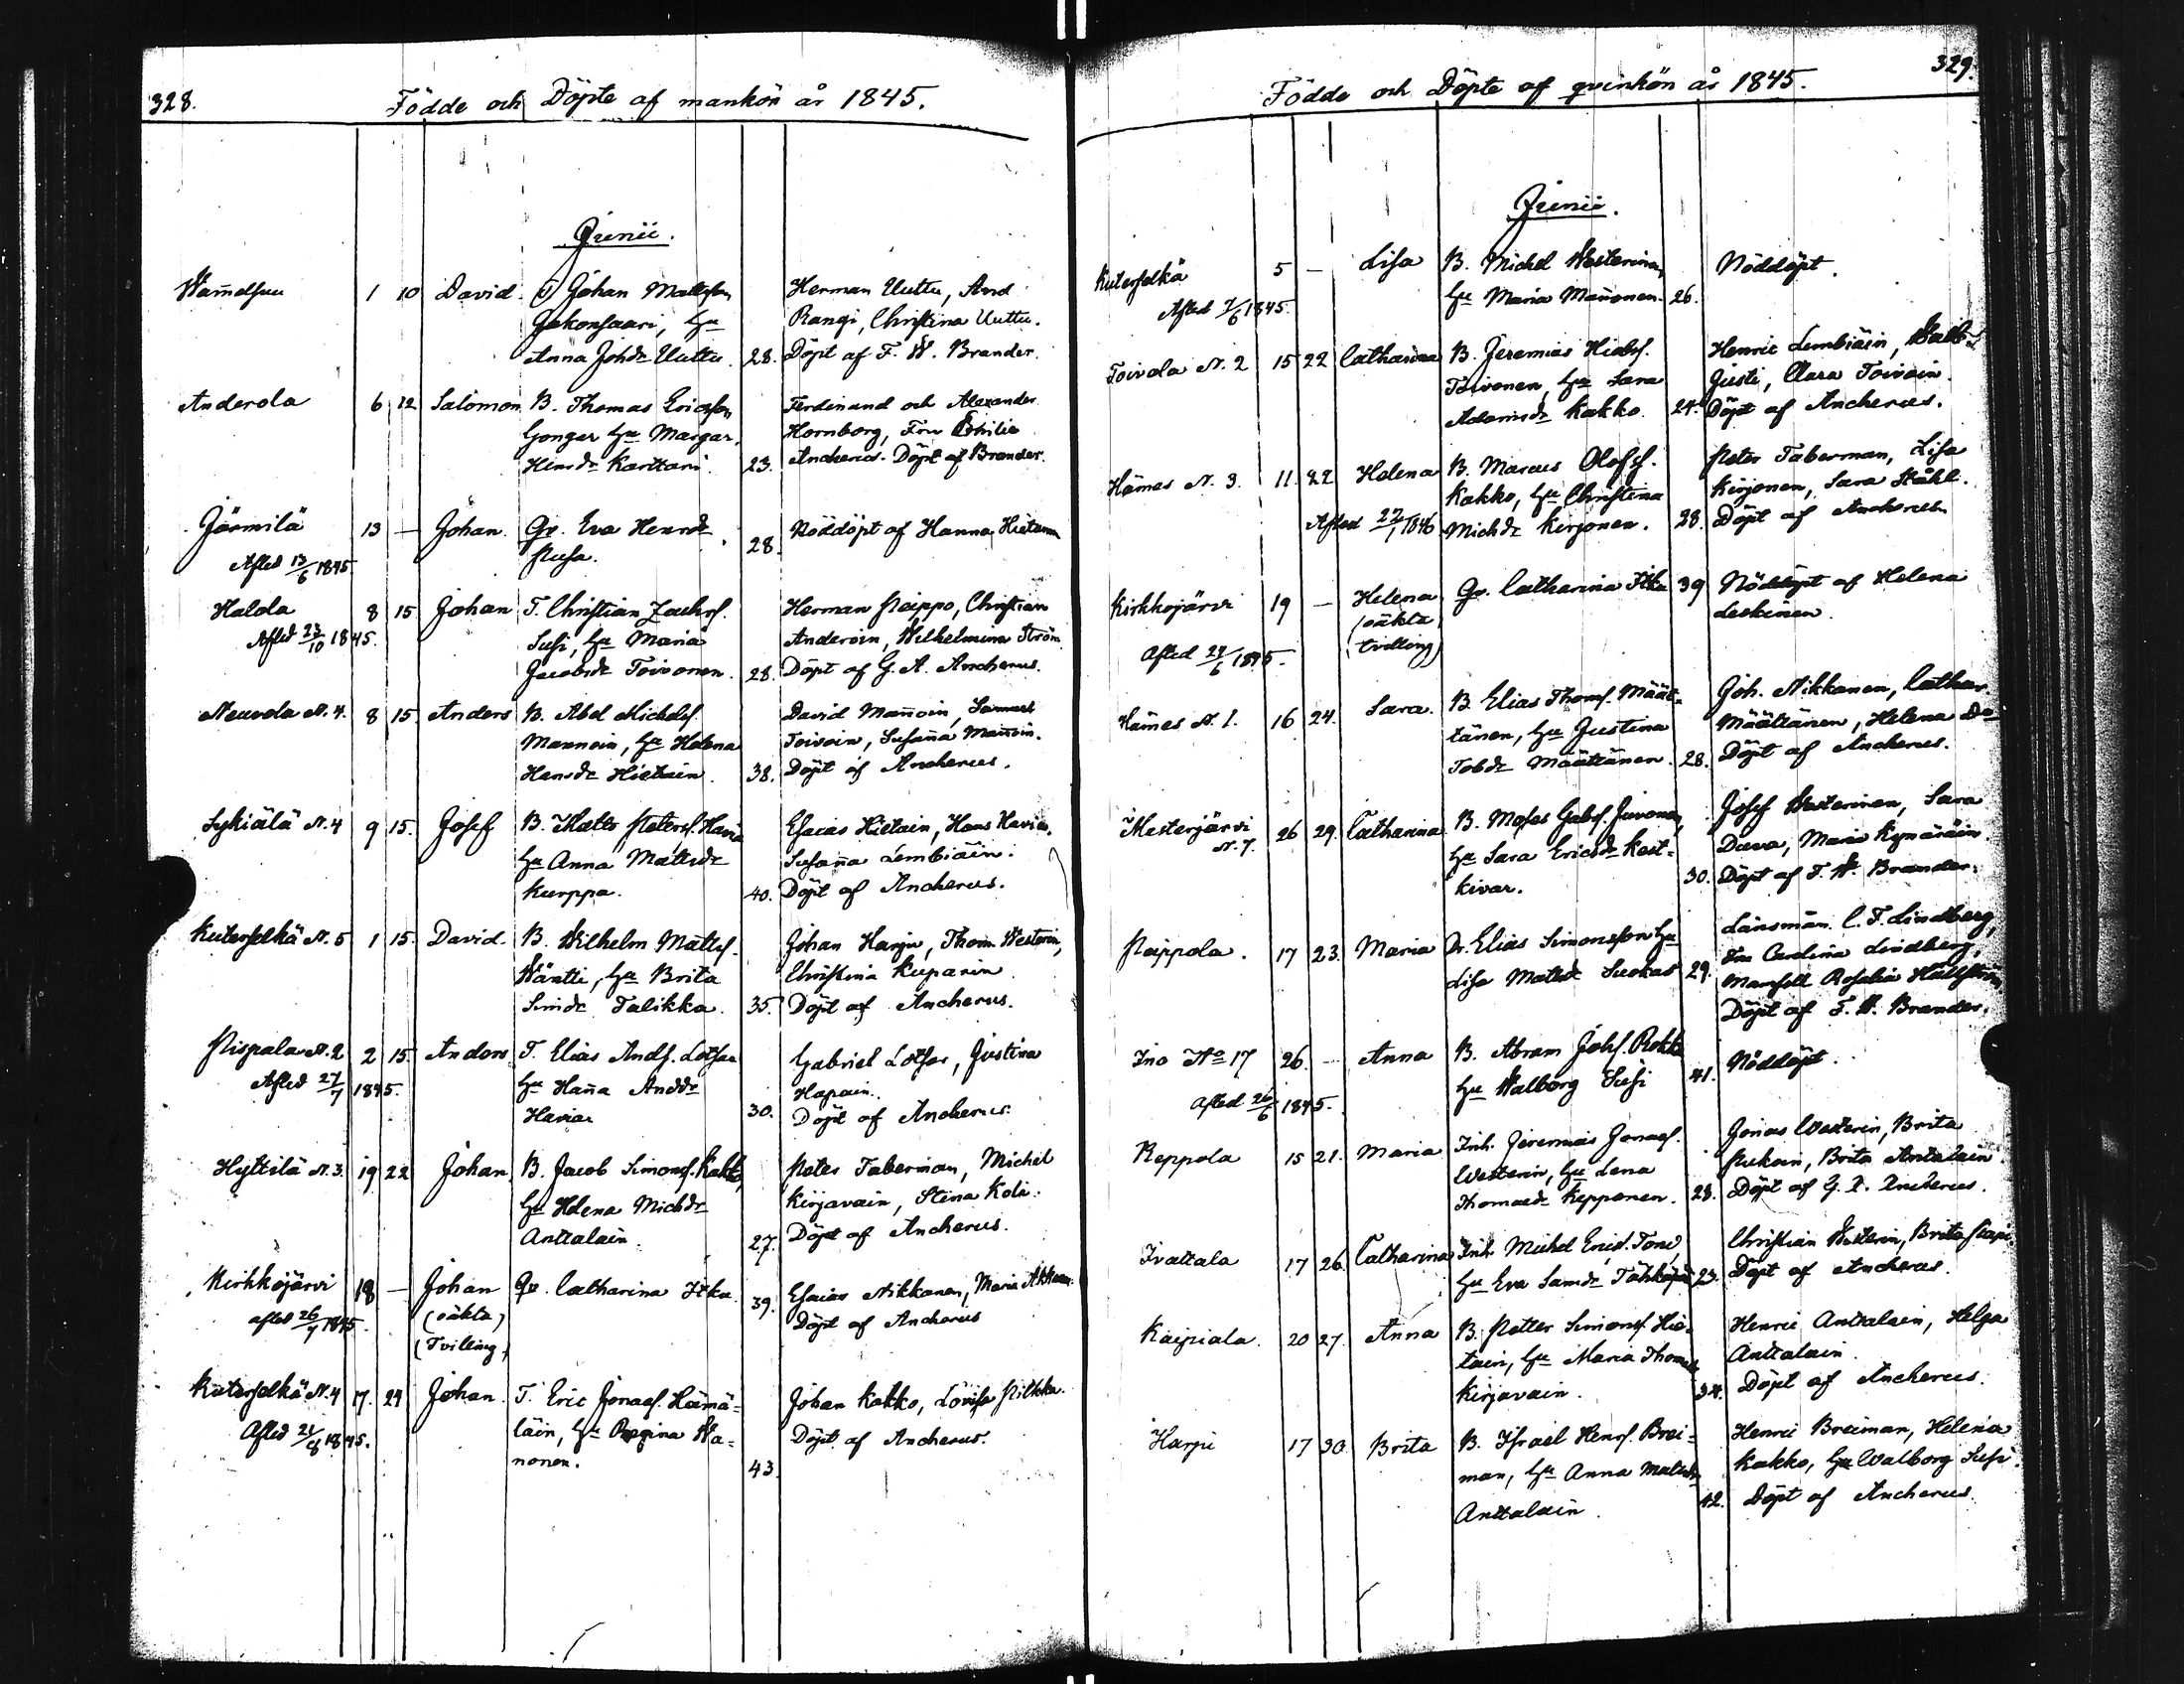 328.
Födde och Döpte af mankön år 1845.
Junii.
Wam̄elsuu 1 10 David. Johan Mattsson Herman Uuttu, And
Jakonsaari, Hu Rangi, Christina Uuttu.
Anna Johdr Uuttu. 28. Döpt af F. W. Brander.
Anderola 6 12 Salomon B. Thomas Ericsson Ferdinand och Alexander
Gongar Hu Margar. Hornborg, Fru
Hinrdr Karttari 23. Ancherus. Döpt af Brander.
Järmilä 13 — Johan. Qv. Eva Henrdr Nöddöpt af Hanna Hietanen
Pusa. 28.
Afled 13/6 1845
Halola 8 15 Johan T. Christian Zachrs. Herman Paippo, Christian
Afled 23/10 1845. Susi, Hu Maria Anderoin, Wilhelmina Ström
Jacobsdr Toivonen. 28. Döpt af G. A. Ancherus.
Neuvola N. 4. 8 15. Anders B. Abel Michelss. David Man̄oin, Samuel
Mannoin, Hu Helena Toivoin, Susan̄a Man̄oin.
Henrdr Hietain. 38. Döpt af Ancherus.
Sykiälä N. 4 9 15. Josef B. Matts Peterss. Havia Esaias Hietain, Hans Havia,
Hu Anna Mattsdr Susan̄a Lembiäin.
Kurppa. 40. Döpt af Ancherus.
Kuterselkä N. 5 1 15. David. B. Wilhelm Mattss. Johan Harju, Thom. Westerin,
Wäntti, Hu Brita Christina Kuparin
Simdr Talikka. 35. Döpt af Ancherus.
Pispala N. 2 2 15. Anders T. Elias Ands. Lotsar Gabriel Lotsar, Justina
Afled 27/7 1845. Hu Han̄a Anddr Hapain.
Haviar 30. Döpt af Ancherus.
Hyttilä N. 3. 19 22 Johan B. Jacob Simonss. Kakko, Peter Taberman, Michel
Hu Helena Michdr Kirjavain, Stina Koli.
Anttalain. 27. Döpt af Ancherus.
Kirkkojärvi 18 — Johan Qv. Catharina Itku 39. Esaias Nikkanen, Maria
afled 26/7 1845. (oäkta) Döpt af Ancherus
(Tvilling)
Kuterselkä N. 4 17. 24 Johan. T. Eric Jonass. Hämä- Johan Kakko, Lovisa Pilkka.
Afled 21/8 1845. läin, Hu Regina Wa- Döpt af Ancherus.
nonen. 43.
329.
Födde och Döpte af qvinkön år 1845.
Junii.
Kuterselkä 5 — Lisa B. Michel Westerinen, Nöddöpt.
Afled 7/6 1845. Hu Maria Man̄onen. 26.
Toivola N. 2 15 22 Catharina B. Jeremias Henric Lembiäin,
Toivonen, Hu Sara Justi, Clara Toivoin.
Adamsdr Kakko. 24. Döpt af Ancherus.
Hämes N. 3. 11. 22 Helena B. Marcus Olofss. Peter Taberman, Lisa
Kakko, Hu Christina Kirjonen, Sara Ståhl.
Afled 27/1 1846 Michdr Kirjonen. 28. Döpt af Ancherus.
Kirkkojärvi 19 — Helena Qv. Catharina Itku 39 Nöddöpt af Helena
(oäkta Leskinen.
Afled 24/6 1845. tvilling)
Hämes N. 1. 16. 24. Sara. B. Elias Thoms. Määt- Joh. Nikkanen, Cathar.
tänen, Hu Justina Määttänen, Helena Do
Tobdr Määttänen. 28. Döpt af Ancherus.
Mesterjärvi 26 29. Catharina B. Moses Gabs. Juvonen, Josef Westerinen, Sara
N. 7. Hu Sara Ericsdr Kost- Duva, Maria Kynäräin.
kivar. 30. Döpt af F. W. Brander.
Paippola. 17 23. Maria Dr. Elias Simonsson Hu Länsmän. C. F. Lindberg,
Lisa Matsdr Suokas 29. Fru Carolina Lindberg,
Mamsell Rosalia Hällström
Döpt af F. W. Brander.
Ino No 17 26. — Anna B. Abram Johs. Rokka Nöddöpt.
Hu Walborg Susi 41.
Afled 26/6 1845.
Reppola 15 21. Maria Inh. Jeremias Jonass. Jonas Westerin, Brita
Westerin, Hu Lena Pukoin, Brita Anttalain.
Thomasdr Repponen. 28. Döpt af G. A. Ancherus.
Ivattala 17 26. Catharina Inh. Michel Ericss. Toni, Christian Westerin, Brita
Hu Eva Samdr 23. Döpt af Ancherus.
Kaipiala. 20 27. Anna B. Petter Simonss. Hie- Henric Anttalain, Helga
tain, Hu Maria Thomasdr Anttalain.
Kirjavain. 34. Döpt af Ancherus.
Harju 17 30. Brita B. Israel Henrs. Brei- Henric Breiman, Helena
man, Hu Anna Matsdr Kakko, Hu Walborg Susi.
Anttalain. 42. Döpt af Ancherus.